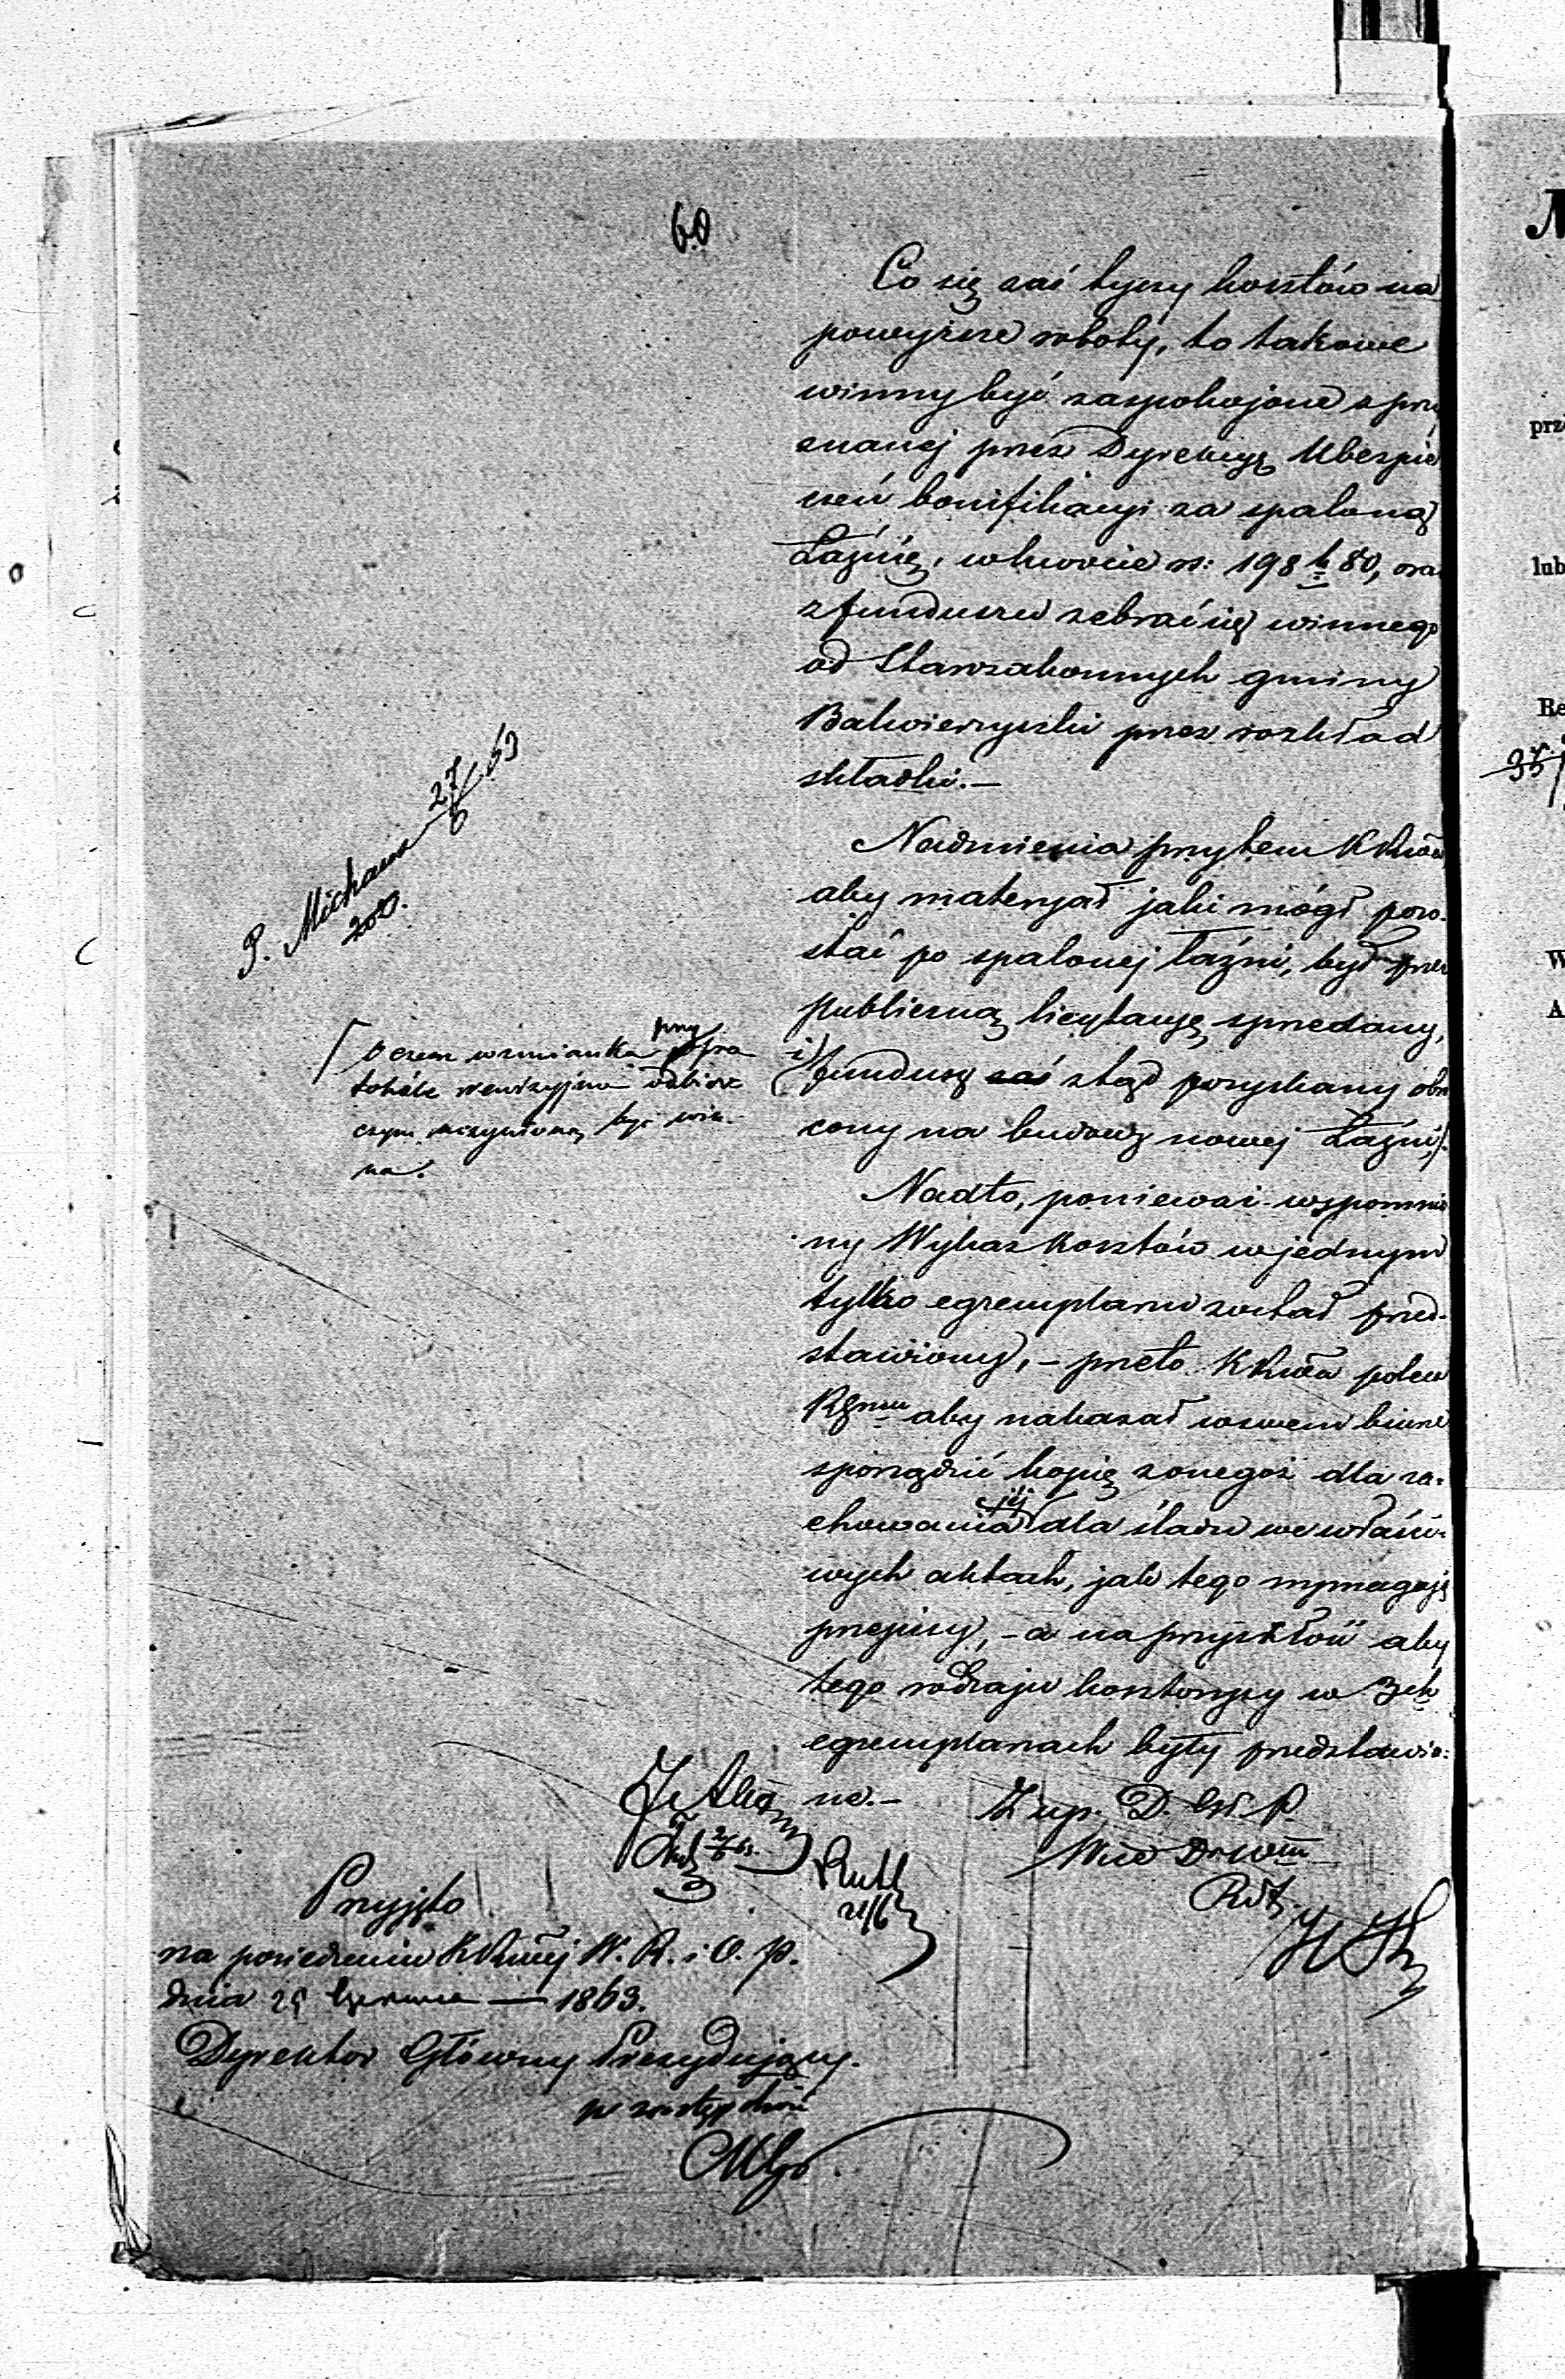 60
Co się zaś tyczy kosztów na
powyższe roboty, to takowe
winny być zaspokojone z przy
znanej przez Dyrekcyę Ubezpie
czeń bonifikacyi za spaloną
Łaźnię, w kwocie rs: 198 k 80, oraz
z funduszu zebrać się winnego
od Starozakonnych gminy
Balwierzyszki przez rozkład
składki.—
Nadmienia przytem KRząd
aby materyał jaki mógł pozo-
stać po spalonej łaźni, był przez
publiczną licytacyę sprzedany,
i fundusz zaś ztąd pozyskany obró
cony na budowę nowej Łaźni
Nadto, ponieważ wspomnio
ny Wykaz Kosztów w jednym
tylko egzemplarzu został przed-
stawiony, – przeto KRząd poleca
aby nakazał w swem biurze
sporządzić kopię z onegoż dla za-
chowania jéj dla śladu we właści-
wych aktach, jak tego wymagają
przepisy, – a na przyszłość aby
tego rodzaju kosztorysy w 3ch
egzemplarzach były przedstawio-
ne.–
P. Michaux 27/6 63
200.
o czem wzmianka przy pro
tokóle rewizyjno odbior
czym uczynioną być win-
na.
Z up. D. Gł. P.
21/6
Przyjęto
na posiedzeniu KRząej W. R. i O. P.
dnia 25 Czerwca — 1863.
Dyrektor Główny Prezydujący.
w zastępstwie